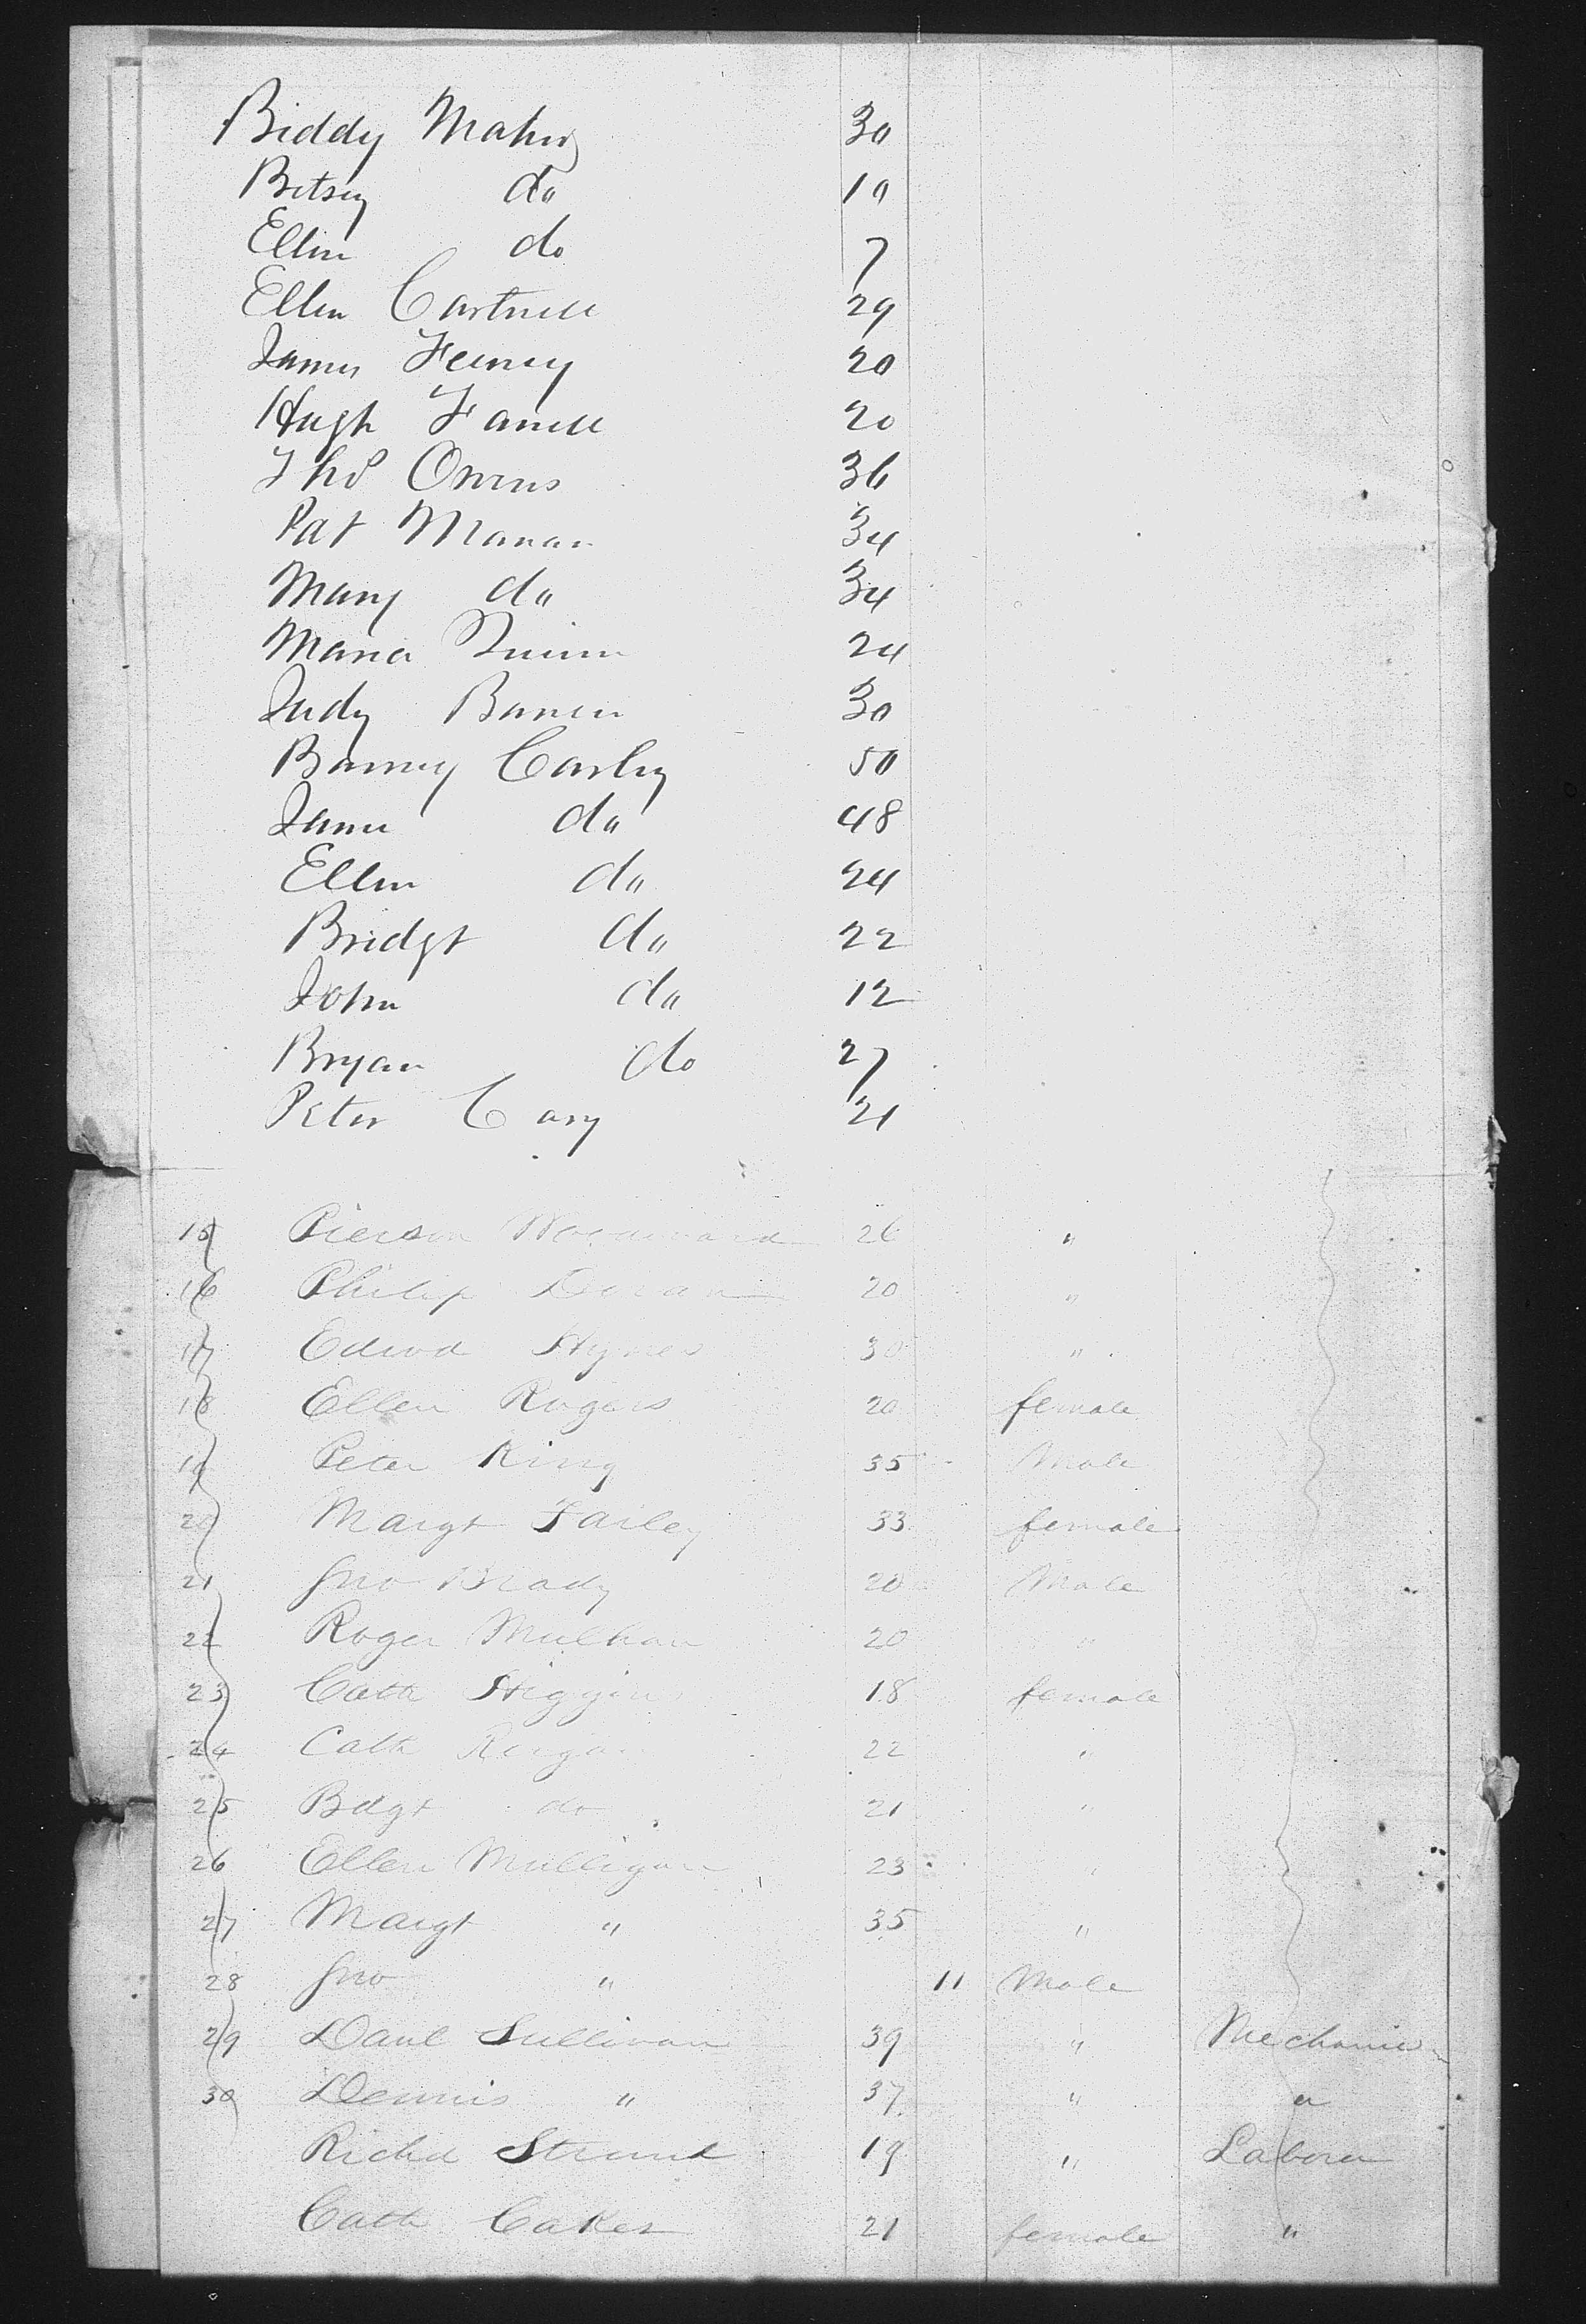 Biddy Mahr 30
Betsey do 10
Ellen do 7
Ellen Cartnell 29
James Feeney 20
Hugh Farrell 20
Thos Owens 36
Pat Manan 34
Mary do 34
Maria Quinn 24
Judy Barren 30
Barney Carley 50
Jane do 48
Ellen do 24
Bridgt do 22
John do 12
Bryan do 27
Peter Cary 21
15 Pierson Woodward 26 "
16 Philip Doran 20 "
17 Edwd Hynes 30 "
18 Ellen Rogers 20 female
19 Peter King 35 Male
20 Margt Farley 33 female
21 Jno Brady 20 Male
22 Roger Mulhan 20 "
23 Cath Higgins 18 female
24 Cath Reigan 22 "
25 Bdgt do 21 "
26 Ellen Mulligan 23 "
27 Margt " 35 "
28 Jno " 11 Male
29 Danl Sullivan 39 " Mechanic
30 Dennis " 37 " "
Richd Strunk 19 " Laborer
Cath Caker 21 female "